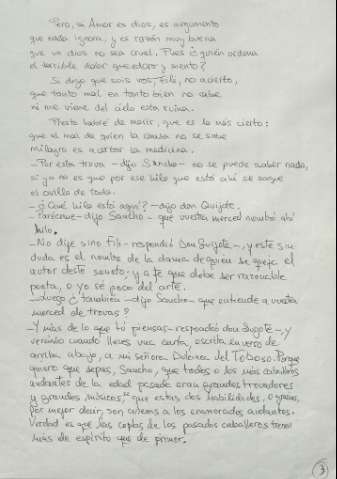 Pero, si Amor es dios, es argumento
que nada ignora, y es razón muy buena
que un dios no sea cruel. Pues ¿quién ordena
el terrible dolor que adoro y siento?
Si digo que sois vos, Fili, no acierto,
que tanto mal en tanto bien no cabe
ni me viene del cielo esta ruina.
Presto habré de morir, que es lo más cierto:
que al mal de quien la causa no se sabe
milagro es acertar la medicina.
-Por esta trova -dijo Sancho- no se puede saber nada,
si ya no es que por ese hilo que está ahí se saque
el ovillo de todo.
-¿Qué hilo está aquí? -dijo don Quijote.
-Paréceme -dijo Sancho- que vuestra merced nombró ahí
hilo.
-No dije sino Fili -respondió Don Quijote-, y este sin
duda es el nombre de la dama de quien se queja el
autor deste soneto; y a fe que debe ser razonable
poeta, o yo sé poco del arte.
-Luego ¿también -dijo Sancho- que entiende a vuestra
merced de trovas?
-Y más de lo que tú piensas -respondió don Quijote-, y
veráslo cuando lleves una carta, escrita en verso de
arriba abajo, a mi señora Dulcinea del Toboso. Porque
quiero que sepas, Sancho, que todos o los más caballeros
andantes de la edad pasada eran grandes trovadores
y grandes músicos, que estas dos habilidades, o gracias,
por mejor decir, son anexas a los enamorados andantes.
Verdad es que las coplas de los pasados caballeros tienen
más de espíritu que de primor.
3